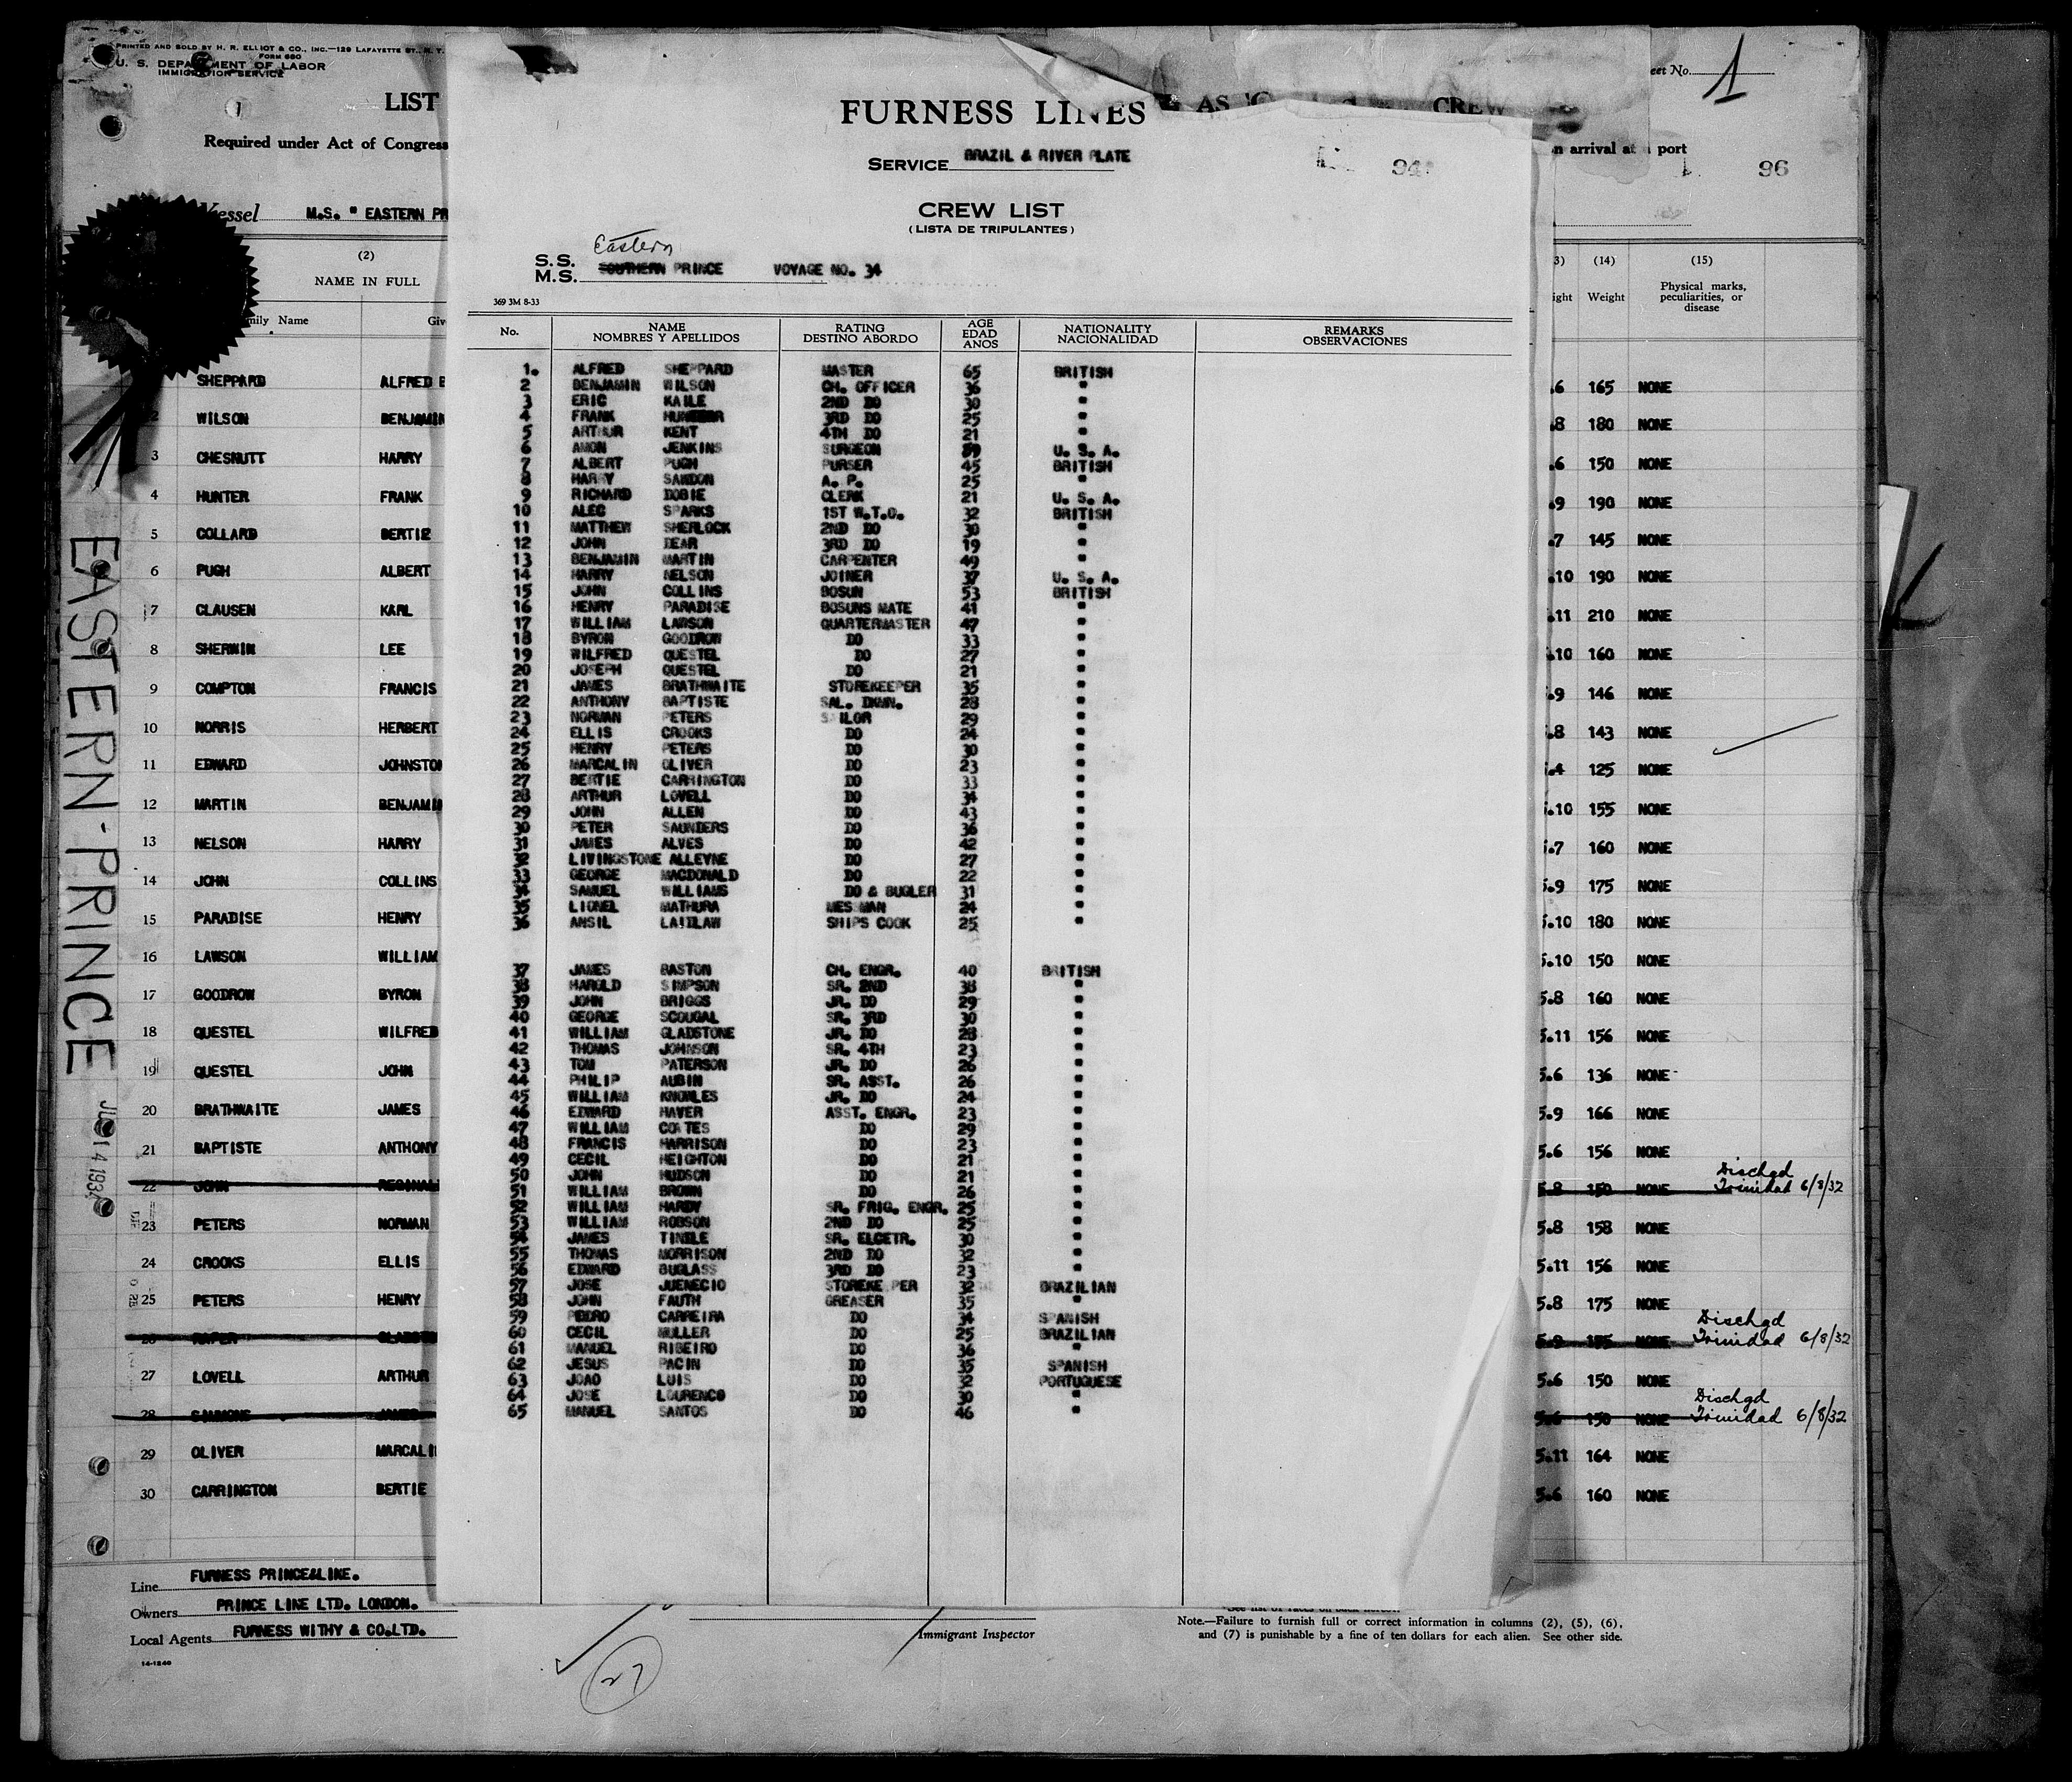 PRINTED AND SOLD BY H. R. ELLIOT & CO., INC.—129 LAFAYETTE ST., N. Y.
FORM 680
U. S. DEPARTMENT OF LABOR
IMMIGRATION SERVICE
LIST
Required under Act of Congress
Vessel M.S. " EASTERN PR
(2)
NAME IN FULL
mily Name Giv
SHEPPARD ALFRED E
2 WILSON BENJAMIN
3 CHESNUTT HARRY
4 HUNTER FRANK
5 COLLARD BERTIE
6 PUGH ALBERT
7 CLAUSEN KARL
8 SHERWIN LEE
9 COMPTON FRANCIS
10 NORRIS HERBERT
11 EDWARD JOHNSTON
12 MARTIN BENJAMIN
13 NELSON HARRY
14 JOHN COLLINS
15 PARADISE HENRY
16 LAWSON WILLIAM
17 GOODROW BYRON
18 QUESTEL WILFRED
19 QUESTEL JOHN
20 BRATHWAITE JAMES
21 BAPTISTE ANTHONY
22 JOHN REGINAL
23 PETERS NORMAN
24 CROOKS ELLIS
25 PETERS HENRY
26 RAPER GLADSTO
27 LOVELL ARTHUR
28 SIMMONS JAMES
29 OLIVER MARCALI
30 CARRINGTON BERTIE
Line FURNESS PRINCE&LINE.
Owners PRINCE LINE LTD. LONDON.
Local Agents FURNESS WITHY & CO.LTD.
14-1240
EASTERN-PRINCE
14 193
FURNESS LINES
SERVICE BRAZIL & RIVER PLATE
94
CREW LIST
(LISTA DE TRIPULANTES)
Eastern
S.S.
M.S. SOUTHERN PRINCE VOYAGE NO. 34
369 3M 8-33
No. NAME NOMBRES Y APELLIDOS RATING DESTINO ABORDO AGE EDAD ANOS NATIONALITY NACIONALIDAD REMARKS OBSERVACIONES
1. ALFRED SHEPPARD MASTER 65 BRITISH
2 BENJAMIN WILSON CH. OFFICER 36 "
3 ERIC KAILE 2ND DO 30 "
4 FRANK HUNTER 3RD DO 25 "
5 ARTHUR KENT 4TH DO 21 "
6 AMON JENKINS SURGEON U. S. A.
7 ALBERT PUGH PURSER 45 BRITISH
8 HARRY SANDON A. P. 25 "
9 RICHARD DOBIE CLERK 21 U. S. A.
10 ALEC SPARKS 1ST W.T.O. 32 BRITISH
11 MATTHEW SHERLOCK 2ND DO 30 "
12 JOHN DEAR 3RD DO 19 "
13 BENJAMIN MARTIN CARPENTER 49 "
14 HARRY NELSON JOINER 37 U. S. A.
15 JOHN COLLINS BOSUN 53 BRITISH
16 HENRY PARADISE BOSUNS MATE 41 "
17 WILLIAM LAWSON QUARTERMASTER 47 "
18 BYRON GOODROW DO 33 "
19 WILFRED QUESTEL DO 27 "
20 JOSEPH QUESTEL DO 21 "
21 JAMES BRATHWAITE STOREKEEPER 35 "
22 ANTHONY BAPTISTE SAL. DKMN. 28 "
23 NORMAN PETERS SAILOR 29 "
24 ELLIS CROOKS DO 24 "
25 HENRY PETERS DO 30 "
26 MARCALIN OLIVER DO 23 "
27 BERTIE CARRINGTON DO 33 "
28 ARTHUR LOVELL DO 34 "
29 JOHN ALLEN DO 43 "
30 PETER SAUNDERS DO 36 "
31 JAMES ALVES DO 42 "
32 LIVINGSTONE ALLEYNE DO 27 "
33 GEORGE MACDONALD DO 22 "
34 SAMUEL WILLIAMS DO & BUGLER 31 "
35 LIONEL MATHURA MESSMAN 24 "
36 ANSIL LAIDLAW SHIPS COOK 25 "
37 JAMES BASTON CH. ENGR. 40 BRITISH
38 HAROLD SIMPSON SR. 2ND 38 "
39 JOHN BRIGGS JR. DO 29 "
40 GEORGE SCOUGAL SR. 3RD 30 "
41 WILLIAM GLADSTONE JR. DO 28 "
42 THOMAS JOHNSON SR. 4TH 23 "
43 TOM PATERSON JR. DO 26 "
44 PHILIP AUBIN SR. ASST. 26 "
45 WILLIAM KNOWLES JR. DO 24 "
46 EDWARD HAVER ASST. ENGR. 23 "
47 WILLIAM COATES DO 29 "
48 FRANCIS HARRISON DO 23 "
49 CECIL HEIGHTON DO 21 "
50 JOHN HUDSON DO 21 "
51 WILLIAM BROWN DO 26 "
52 WILLIAM HARDY SR. FRIG. ENGR. 25 "
53 WILLIAM ROBSON 2ND DO 25 "
54 JAMES TINDLE SR. ELCETR. 30 "
55 THOMAS MORRISON 2ND DO 32 "
56 EDWARD BUGLASS 3RD DO 23 "
57 JOSE JUENECIO STOREKEEPER 32 BRAZILIAN
58 JOHN FAUTH GREASER 35 "
59 PEDRO CARREIRA DO 34 SPANISH
60 CECIL MULLER DO 25 BRAZILIAN
61 MANUEL RIBEIRO DO 36 "
62 JESUS PACIN DO 35 SPANISH
63 JOAO LUIS DO 32 PORTUGUESE
64 JOSE LOURENCO DO 30 "
65 MANUEL SANTOS DO 46 "
AS CREW
eet No. 1
n arrival at a port
96
3) (14) (15)
ight Weight Physical marks, peculiarities, or disease
.6 165 NONE
.8 180 NONE
.6 150 NONE
.9 190 NONE
.7 145 NONE
.10 190 NONE
.11 210 NONE
.10 160 NONE
.9 146 NONE
.8 143 NONE
.4 125 NONE
5.10 155 NONE
5.7 160 NONE
5.9 175 NONE
5.10 180 NONE
5.10 150 NONE
5.8 160 NONE
5.11 156 NONE
5.6 136 NONE
5.9 166 NONE
5.6 156 NONE
5.8 150 NONE Dischgd Trinidad 6/8/32
5.8 158 NONE
5.11 156 NONE
5.8 175 NONE
5.9 155 NONE Dischgd Trinidad 6/8/32
5.6 150 NONE
5.6 150 NONE Dischgd Trinidad 6/8/32
5.11 164 NONE
5.6 160 NONE
Immigrant Inspector
27
See list of races on back hereof.
Note.—Failure to furnish full or correct information in columns (2), (5), (6),
and (7) is punishable by a fine of ten dollars for each alien. See other side.